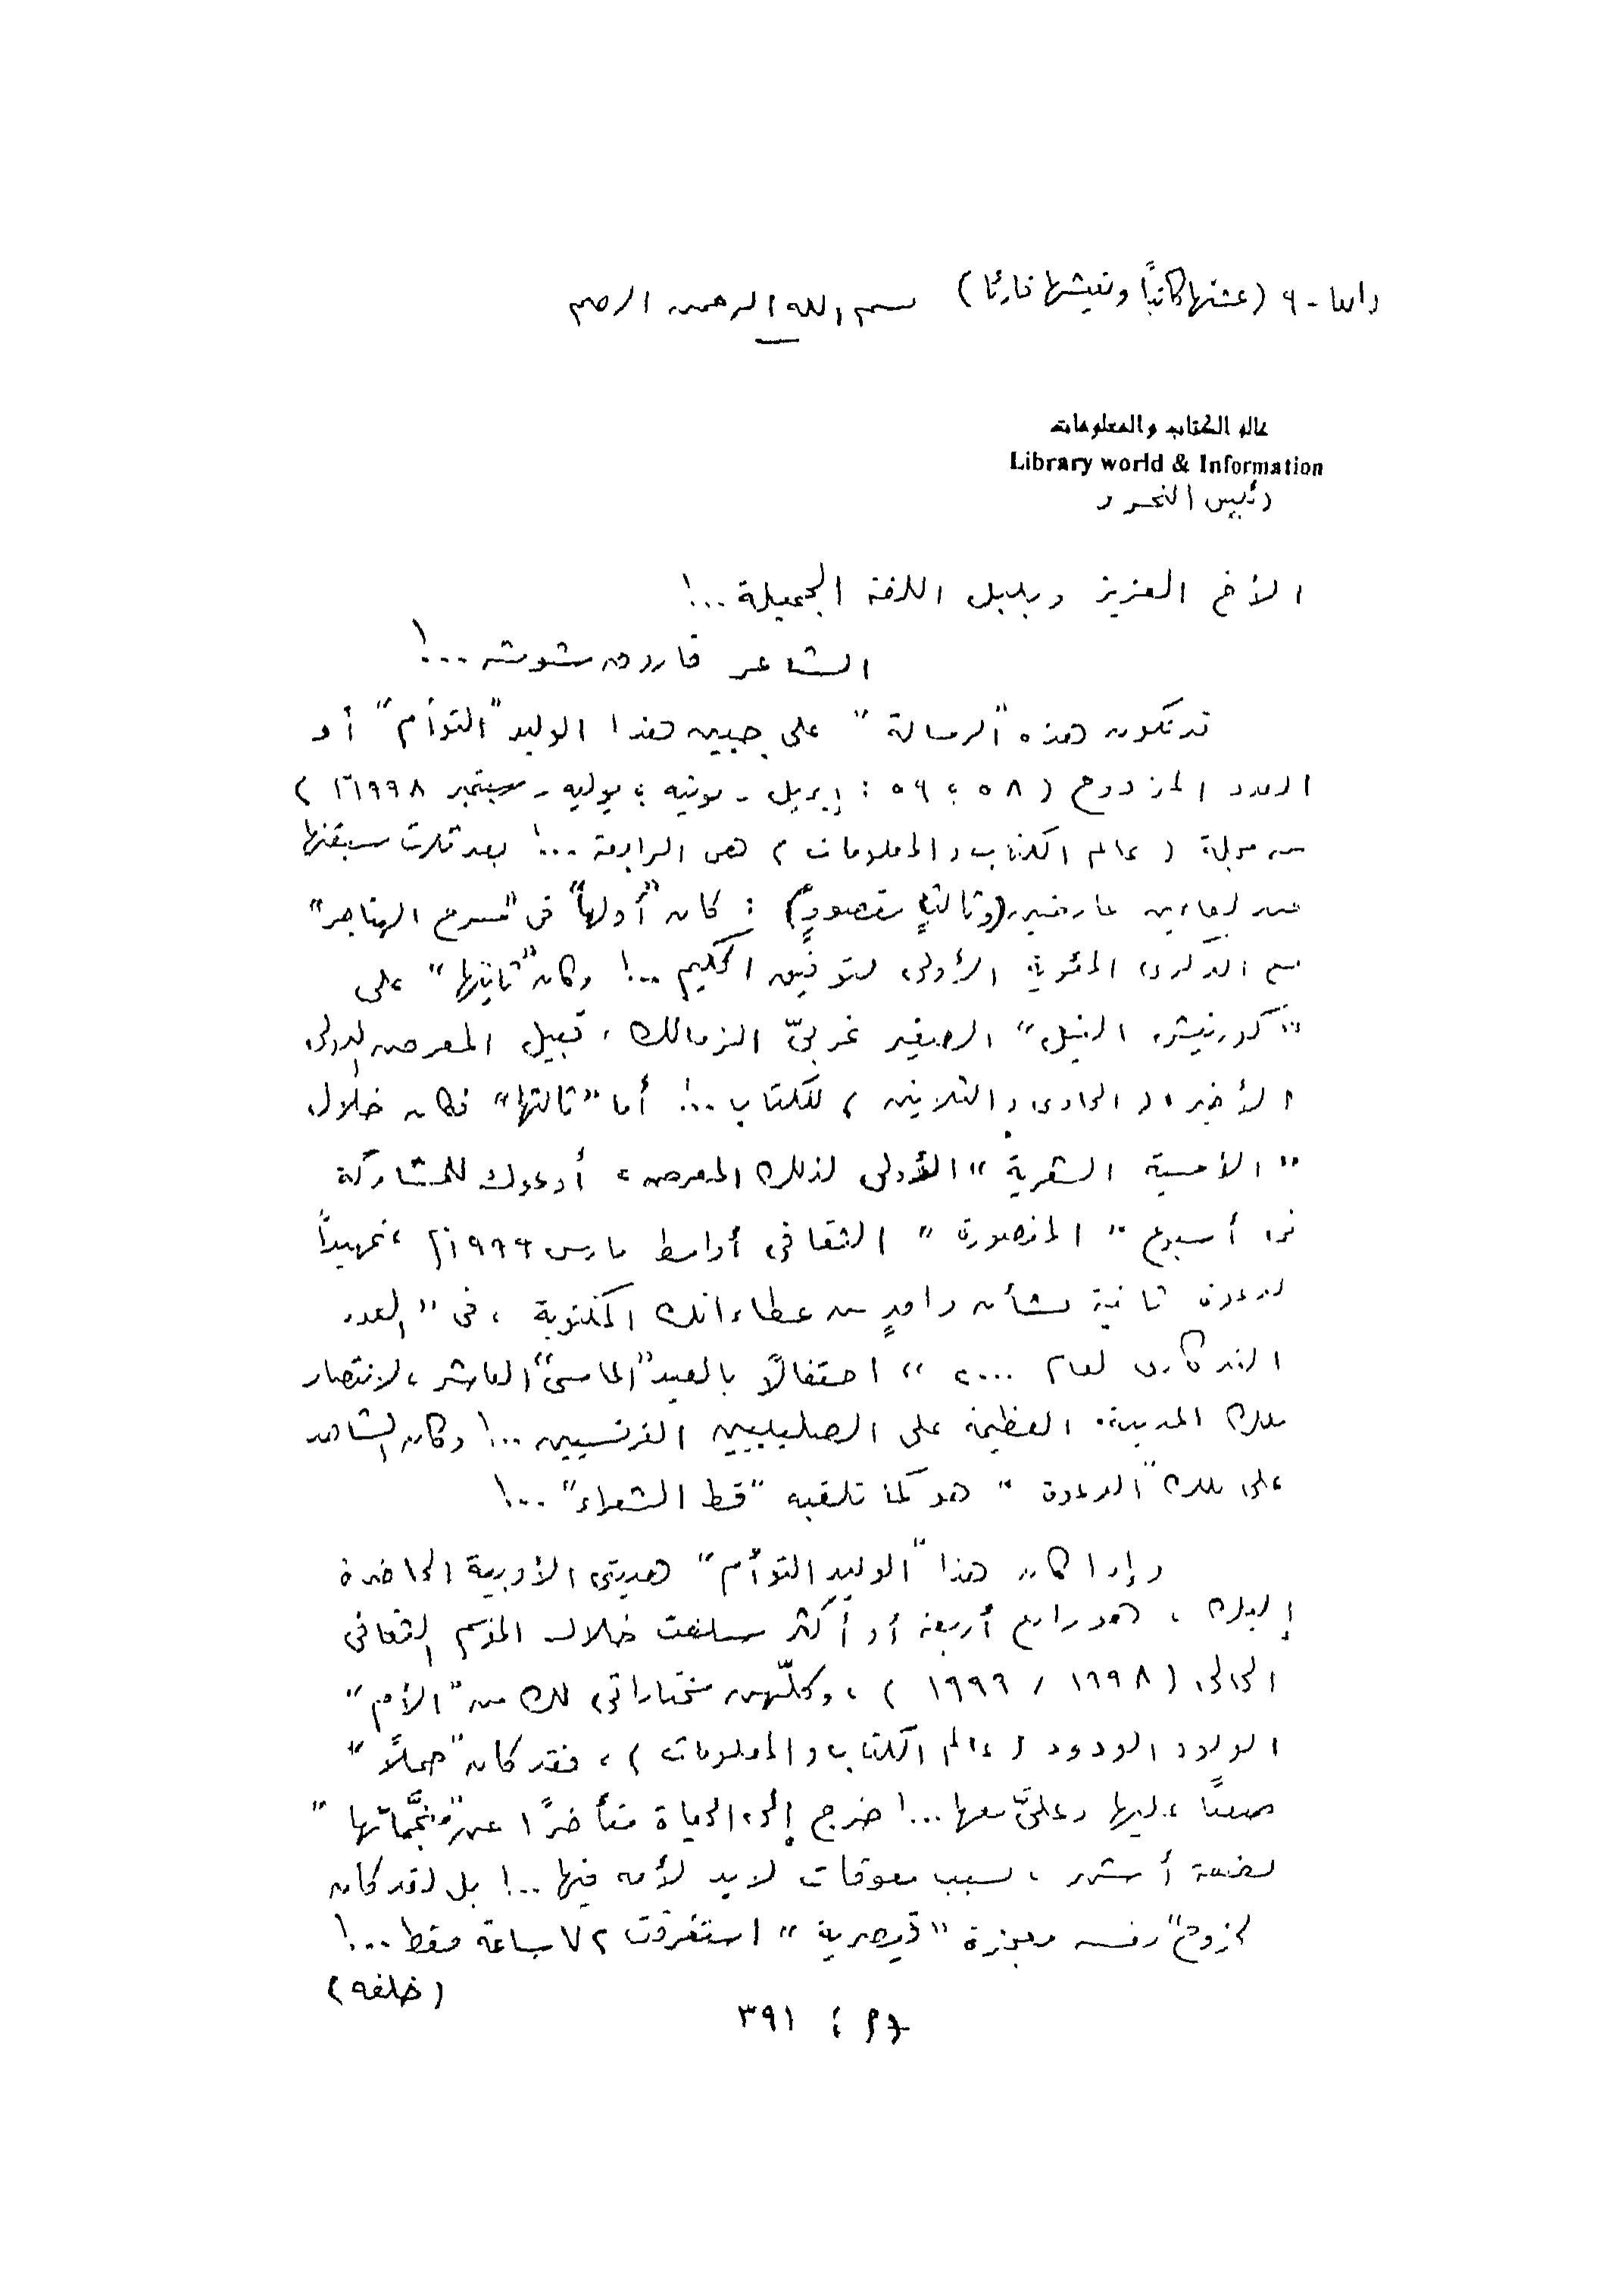 (عشتها كاتبًا وتعيشها قارئًا) بسم الله الرحمن الرحيم
عالم الكتاب والمعلومات
Library world & Information
رئيس التحرير
الأخ العزيز وبلبل اللغة الجميلة ..!
الشاعر فاروق شوشة ...!
قد تكون هذه "الرسالة" على جبين هذا الوليد "التوأم" أو
العدد المزدوج (٥٨ ؛ ٥٩ : إبريل - يونيه ؛ يوليه - سبتمبر ١٩٩٨م)
من مجلة (عالم الكتاب والمعلومات) هى الرابعة ...! بعد ثلاث سبقتها
عند لقاءين عارضين (وثالثٍ مقصودٍ) : كان "أولها" فى "مسرح الهناجر"
مع الذكرى المئوية الأولى لتوفيق الحكيم ..! وكان "ثانيها" على
"كورنيش النيل" الصغير غربىّ الزمالك ، قبيل المعرض الدولى
الأخير (الحادى والثلاثين) للكتاب ...! أما "ثالثها" فكان خلال
"الأمسية الشعرية" الأولى لذلك المعرض ، أدعوك للمشاركة
فى أسبوع "المنصورة" الثقافى أواسط مارس ١٩٩٩م ، تمهيدًا
لدعوة ثانية بشأن واحدٍ من عطاءاتك المكتوبة ، فى "العدد
التذكارى لعام ٢٠٠٠" احتفالًا بالعيد "الماسى" العاشر ، لانتصار
تلك المدينة العظيمة على الصليبيين الفرنسيين ..! وكان الشاهد
على تلك "الدعوة" هو كما تلقبه "قط الشعراء" ...!
وإذا كان هذا "الوليد التوأم" هديتى الأدبية الحاضرة
إليك ، فهو رابع أربعة أو أكثر سلفت خلال الموسم الثقافى
الحالى (١٩٩٨ / ١٩٩٩) ، وكلّهن مختاراتى لك من "الأم"
الولود الودود (عالم الكتاب والمعلومات) ، فقد كان "حملًا"
صعبًا عليها وعلىَّ معها ...! خرج إلى الحياة متأخرًا عن "منجَّماتها"
بضعة أشهر ، بسبب معوقات لا يد لأمه فيها ..! بل لقد كان
"خروج" نفسه معجزة "قيصرية" استغرقت ٧٢ ساعة فقط ...!
(خلفه)
٣٩١